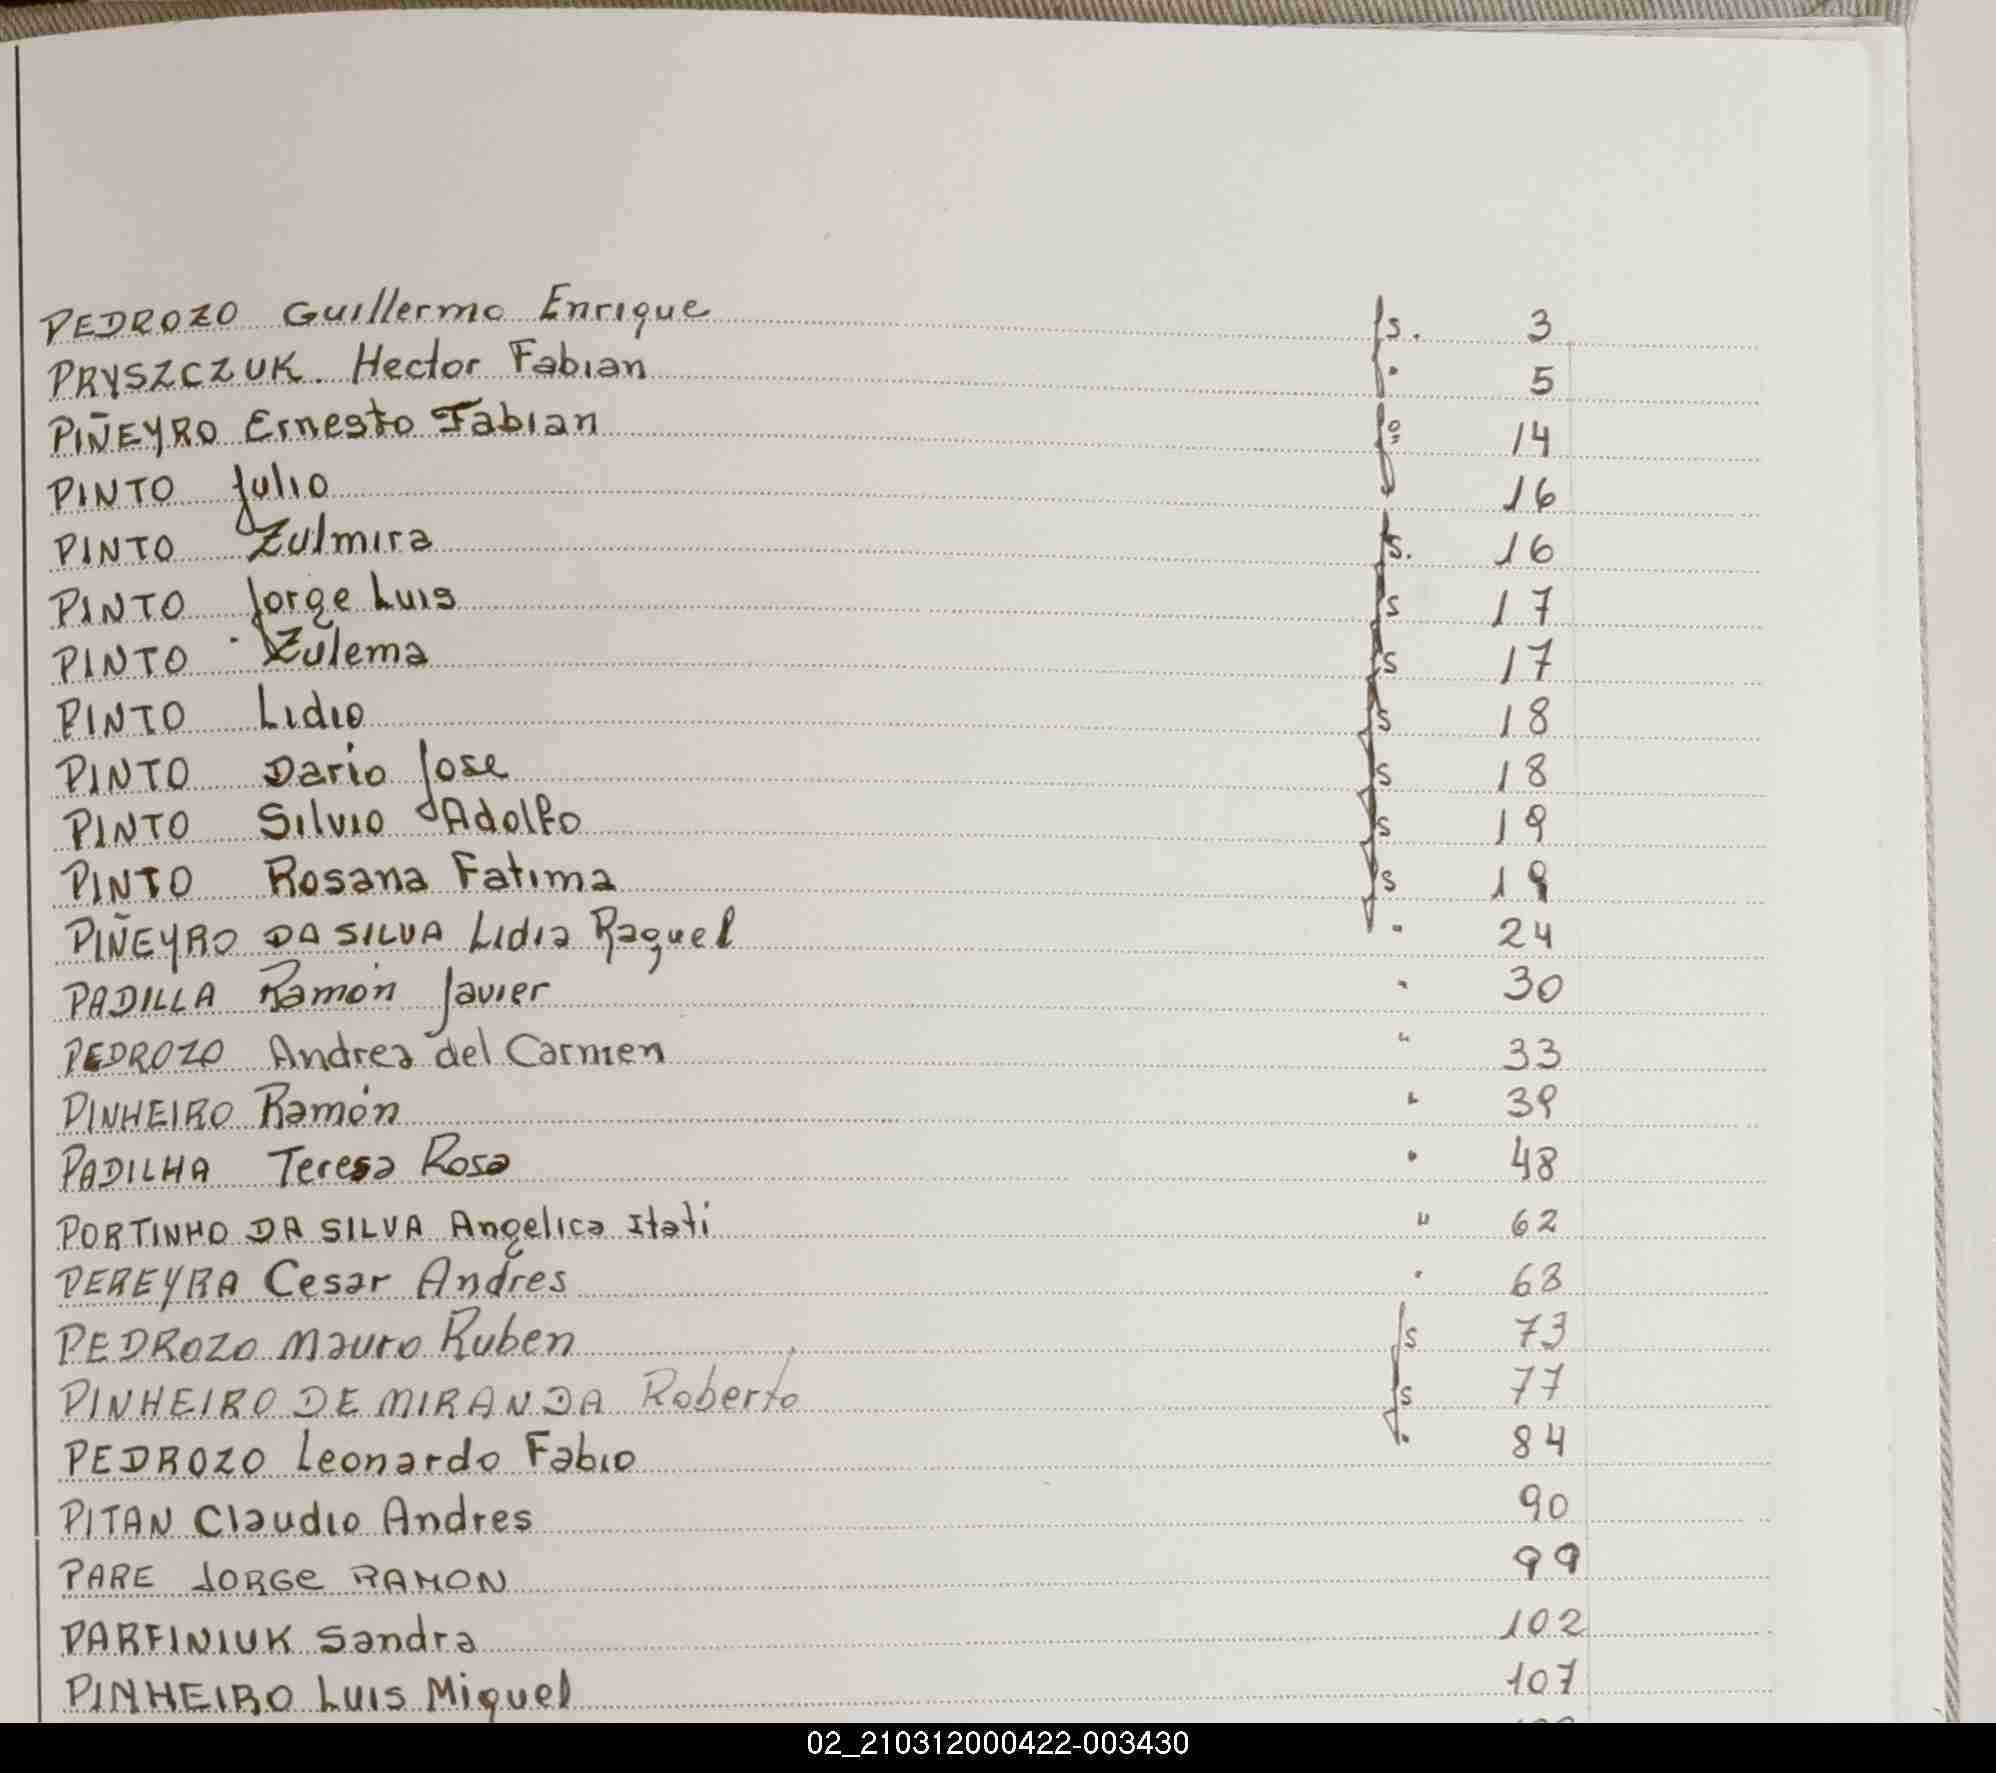 PEDROZO Guillermo Enrique fs. 3
PRYSZCZUK. Hector Fabian " 5
PIÑEYRO Ernesto Fabian fº: 14
PINTO Julio 16
PINTO Zulmira fs. 16
PINTO Jorge Luis fs 17
PINTO Zulema fs 17
PINTO Lidio fs 18
PINTO Dario Jose fs 18
PINTO Silvio Adolfo fs 19
PINTO Rosana Fatima fs 19
PIÑEYRO DA SILVA Lidia Raquel " 24
PADILLA Ramón Javier " 30
PEDROZO Andrea del Carmen " 33
PINHEIRO Ramón " 39
PADILHA Teresa Rosa " 48
PORTINHO DA SILVA Angelica Itati " 62
PEREYRA Cesar Andres " 68
PEDROZO Mauro Ruben fs 73
PINHEIRO DE MIRANDA Roberto fs 77
PEDROZO Leonardo Fabio " 84
PITAN Claudio Andres 90
PARE JORGE RAMON 99
PARFINIUK Sandra 102
PINHEIRO Luis Miguel 107
02_210312000422-003430